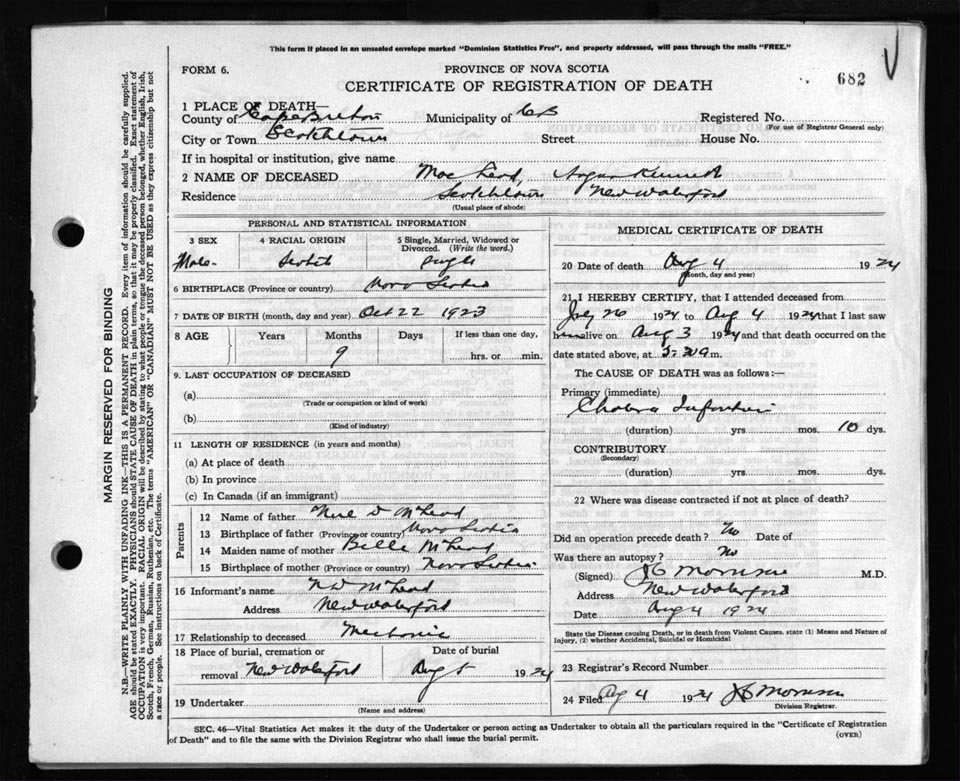 This form if placed in an unsealed envelope marked "Dominion Statistics Free", and properly addressed, will pass through the mails "FREE."
FORM 6.
PROVINCE OF NOVA SCOTIA
CERTIFICATE OF REGISTRATION OF DEATH
682
1 PLACE OF DEATH—
County of Cape Breton Municipality of CB Registered No.
(For use of Registrar General only)
City or Town Scotchtown Street House No.
If in hospital or institution, give name
2 NAME OF DECEASED Mac Leod, Angus Kenneth
Residence Scotchtown New Waterford
(Usual place of abode)
PERSONAL AND STATISTICAL INFORMATION
3 SEX 4 RACIAL ORIGIN 5 Single, Married, Widowed or Divorced. (Write the word.)
Male Scotch Single
6 BIRTHPLACE (Province or country) Nova Scotia
7 DATE OF BIRTH (month, day and year) Oct 22 1923
8 AGE Years Months Days If less than one day,
9 hrs. or min.
9. LAST OCCUPATION OF DECEASED
(a)
(Trade or occupation or kind of work)
(b)
(Kind of industry)
11 LENGTH OF RESIDENCE (in years and months)
(a) At place of death
(b) In province
(c) In Canada (if an immigrant)
Parents
12 Name of father Neil D McLeod
13 Birthplace of father (Province or country) Nova Scotia
14 Maiden name of mother Belle McLeod
15 Birthplace of mother (Province or country) Nova Scotia
16 Informant's name N D McLeod
Address New Waterford
17 Relationship to deceased Mechanic
18 Place of burial, cremation or removal New Waterford Date of burial Aug 5 1924
19 Undertaker
(Name and address)
MEDICAL CERTIFICATE OF DEATH
20 Date of death Aug 4 1924
(Month, day and year)
21 I HEREBY CERTIFY, that I attended deceased from
July 26 1924 to Aug 4 1924 that I last saw
him alive on Aug 3 1924 and that death occurred on the
date stated above, at m.
The CAUSE OF DEATH was as follows:—
Primary (immediate)
Cholera Infantum
(duration) yrs mos. 10 dys.
CONTRIBUTORY
(Secondary)
(duration) yrs. mos. dys.
22 Where was disease contracted if not at place of death?
Did an operation precede death? No Date of
Was there an autopsy? No
(Signed) M.D.
Address New Waterford
Date Aug 4 1924
State the Disease causing Death, or in death from Violent Causes. state (1) Means and Nature of Injury, (2) whether Accidental, Suicidal or Homicidal
23 Registrar's Record Number
24 Filed Aug 4 1924
Division Registrar.
SEC. 46—Vital Statistics Act makes it the duty of the Undertaker or person acting as Undertaker to obtain all the particulars required in the "Certificate of Registration
of Death" and to file the same with the Division Registrar who shall issue the burial permit.
(OVER)
MARGIN RESERVED FOR BINDING
N.B.—WRITE PLAINLY WITH UNFADING INK—THIS IS A PERMANENT RECORD. Every item of information should be carefully supplied.
AGE should be stated EXACTLY. PHYSICIANS should STATE CAUSE OF DEATH in plain terms, so that it may be properly classified. Exact statement of
OCCUPATION is very important. RACIAL ORIGIN will be described by stating to what people or tongue the deceased person belonged, whether English, Irish,
Scotch, French, German, Russian, Ruthenian, etc. The terms "AMERICAN" OR "CANADIAN" MUST NOT BE USED as they express citizenship but not
a race or people. See instructions on back of Certificate.